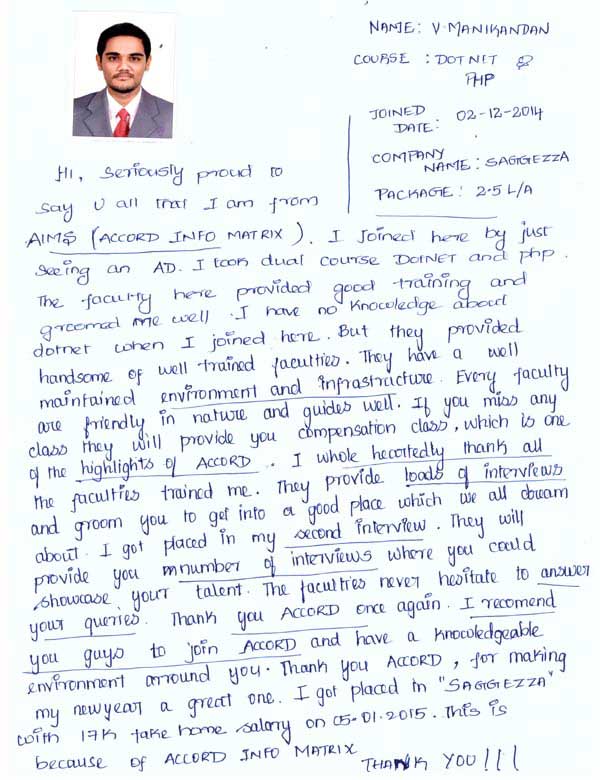 NAME: V. MANIKANDAN
COURSE : DOTNET &
PHP
JOINED
DATE: 02-12-2014
COMPANY
NAME: SAGGEZZA
PACKAGE: 2.5 L/A
Hi, Seriously proud to
say U all that I am from
AIMS (ACCORD INFO MATRIX). I Joined here by just
seeing an AD. I took dual course DOTNET and php.
The faculty here provided good training and
groomed me well. I have no knowledge about
dotnet when I joined here. But they provided
handsome of well trained faculties. They have a well
maintained environment and infrastructure. Every faculty
are friendly in nature and guides well. If you miss any
class they will provide you compensation class, which is one
of the highlights of ACCORD. I whole heartedly thank all
the faculties trained me. They provide loads of interviews
and groom you to get into a good place which we all dream
about. I got placed in my second interview. They will
provide you nnumber of interviews where you could
showcase your talent. The faculties never hesitate to answer
your queries. Thank you ACCORD once again. I recomend
you guys to join ACCORD and have a knowledgeable
environment arround you. Thank you ACCORD, for making
my newyear a great one. I got placed in "SAGGEZZA"
with 17K take home salary on 05-01-2015. This is
because of ACCORD INFO MATRIX
THANK YOU!!!